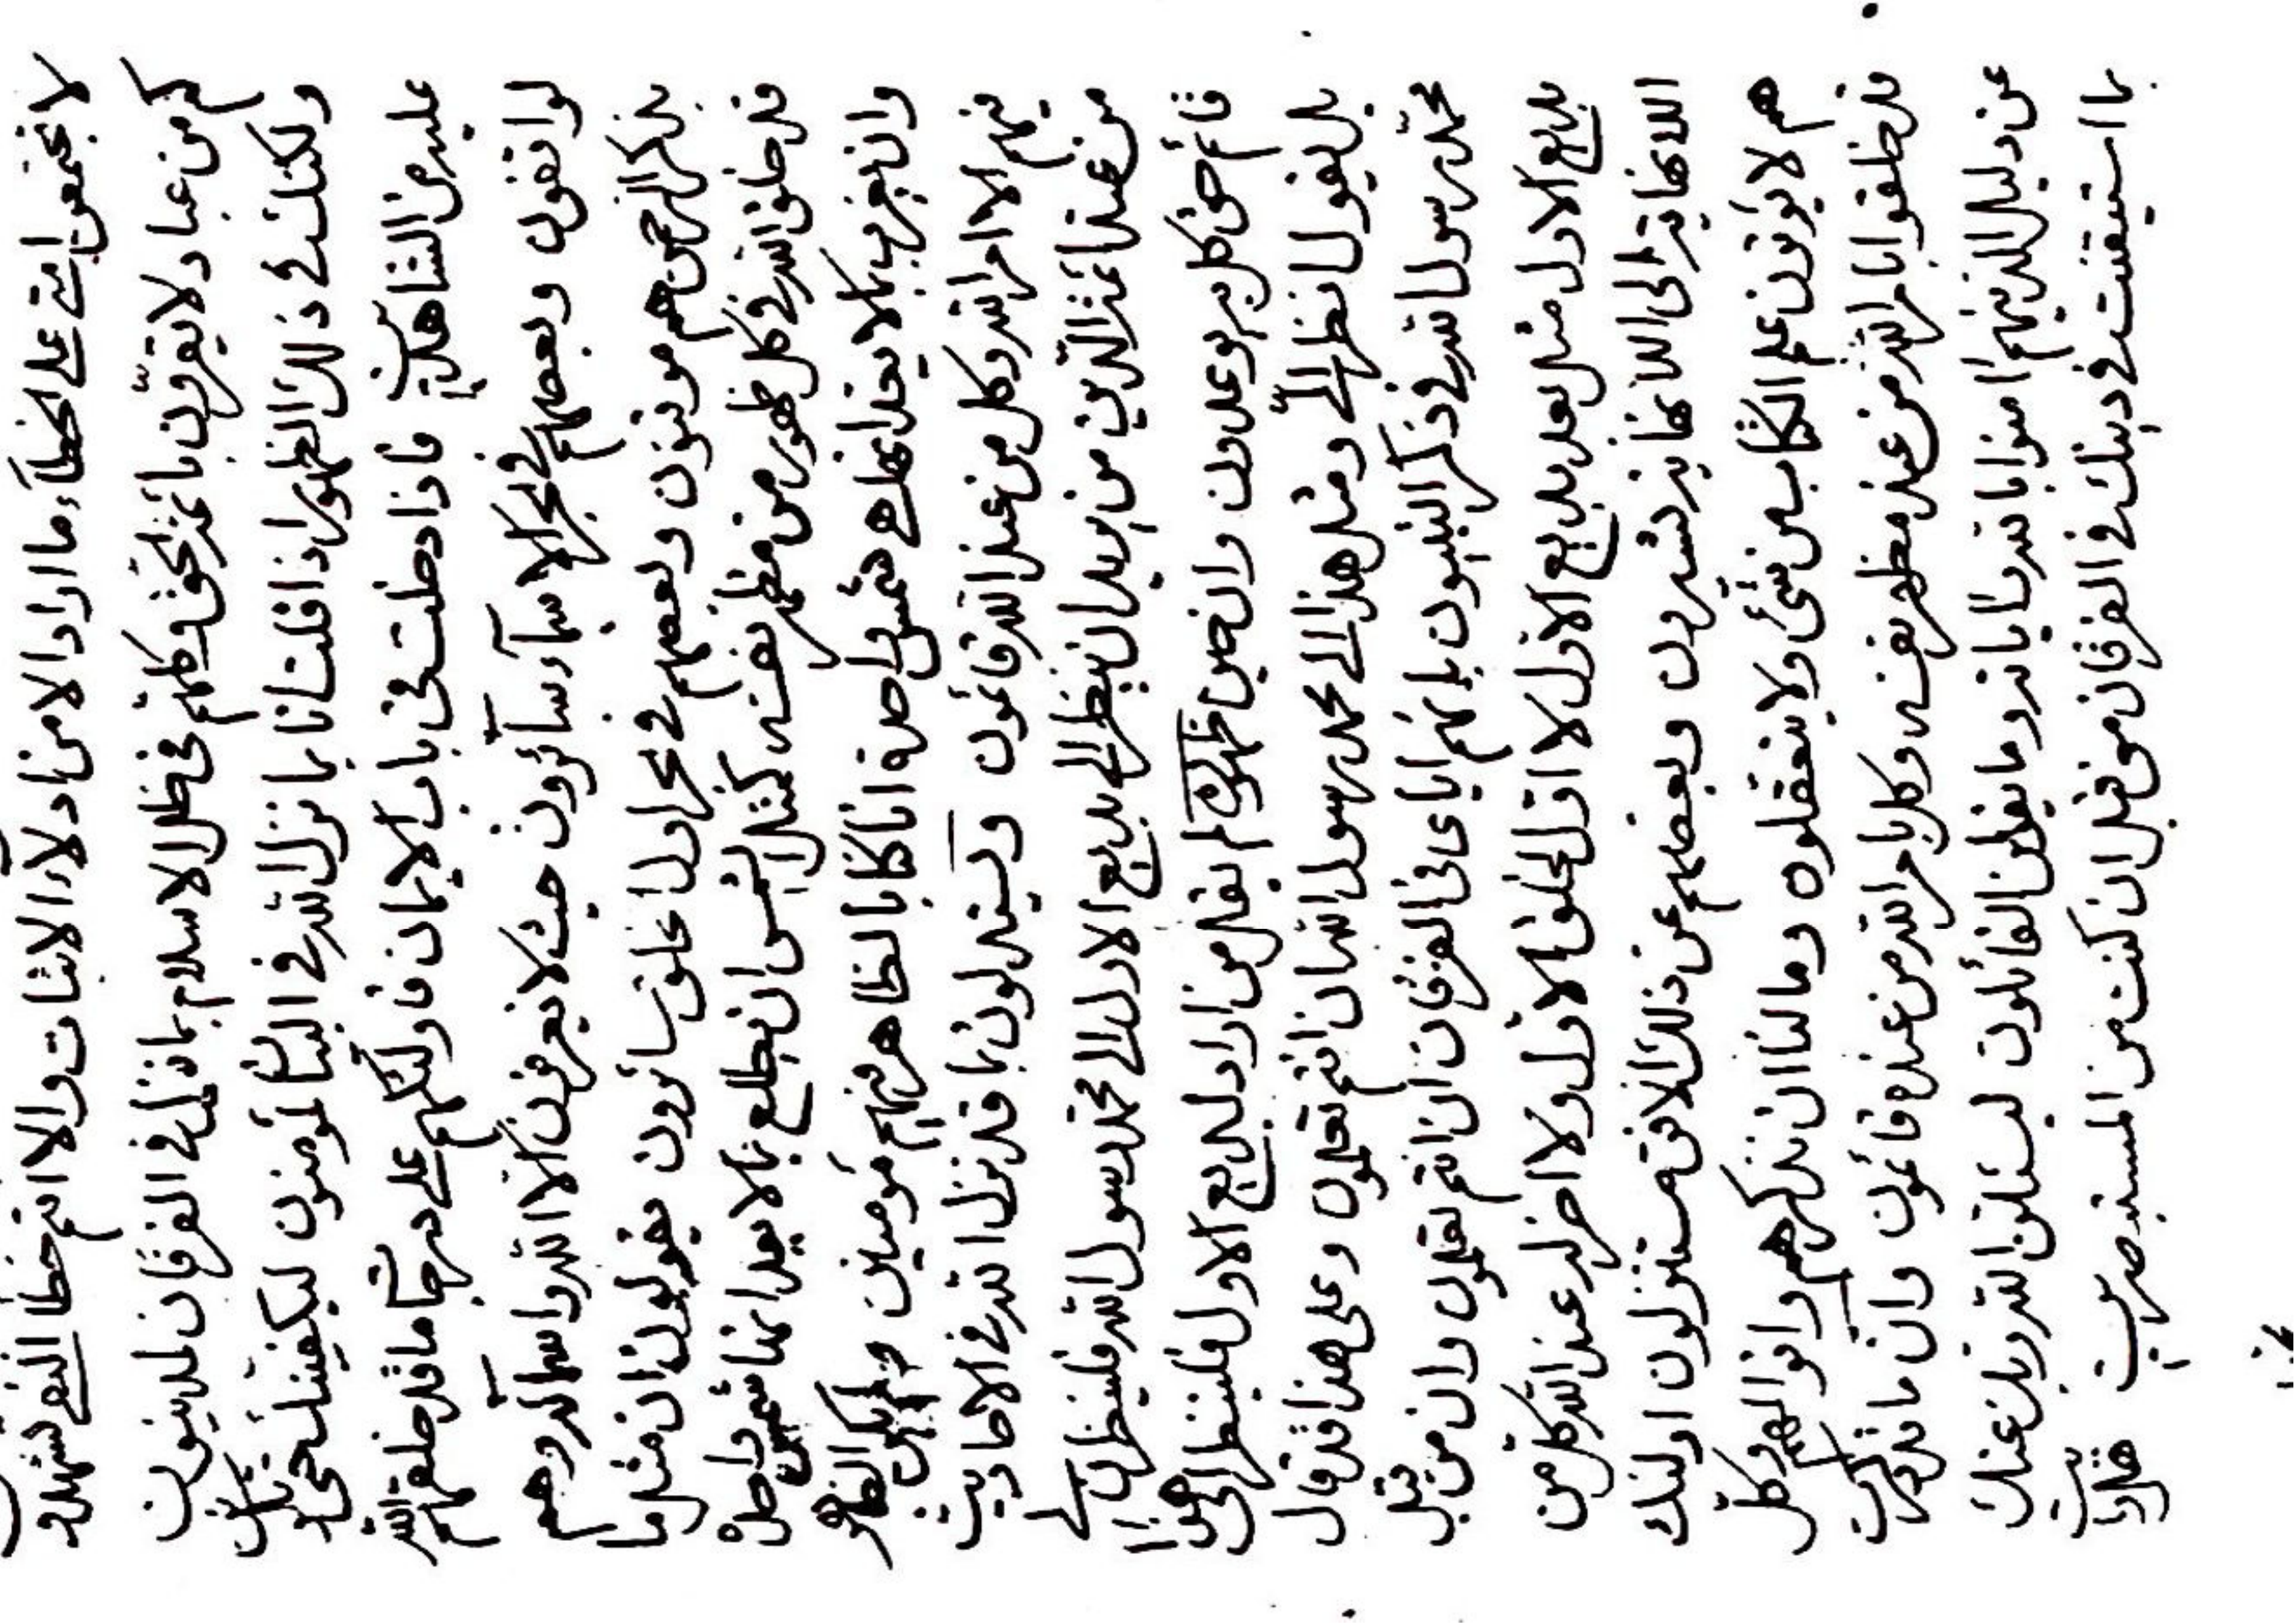 لا تجتمعن امتى على الخطآء ما اراد الا من ادلاء الاثبات والا انتم خطا النفى تشهدون
كم من عباد لا يقرون بائمة الحق وكلهم فى ظل الاسلام بما نزل فى الفرقان لمدينون
ولكنك فى ذلك الظهور اذا قلت انا بما نزل الله فى البيان لمؤمنون ليكفينك حجة ربك
عليه من الشاهدين فاذا دخلت فى باب الايمان فاولئكهم على درجات ما قد خلقهم الله
لو انفقون وبعضهم فى بحر الاسمآء سآئرون حيث لا يعرفون الا الله واسمآئه وهم
بذكر الرحمن هم موقنون وبعضهم فى بحر اول الخلق سائرون يقولون ان مثل ما
قد خلق الله فى كل ظهور من مظهر نفسه كمثل الشمس ان تطلع بما لا يعد انها شمس واحدة
وان يغرب بما لا يعد انها هى شمس واحدة انا كنا بالظاهر فيهم مؤمنين ولكن الظاهر
فيهم الا امر الله وكل من عند الله قائمون ويستدلون بما قد نزل الله فى الاحاديث
من عند ائمة الدين من يريد ان ينظر الى بديع الاول الى محمد رسول الله فلينظرن الى
قائم حق كل به يوعدون وان حين ظهوره لم يقل من اراد بديع الاول فلينظر الى هذا
بل يقول انظر الى ومثل هذا الى محمد رسول الله ان انتم تعلمون وعلى هذا قد قال
محمد رسول الله فى ذكر النبيون بانهم اياى فى الفرقان ان انتم تعلمون وان من قبل
بديع الاول مثل بعد بديع الاول لا اول لخلق الاول ولا اخر له عند الله كل من
اللانهاية الى اللانهاية تسيرون وبعضهم عن ذلك الافق مستنزلون اولئك
هم لا يؤتون علم الكتاب من شئ ولا يتعقلون وما لنا ان نذكرهم وانوالهم وكل
قد خلقوا بامر الله من عند مظهر نفسه وكل بامر الله من عنده قائمون وان ما ذكرت
عن دليل الذينهم امنوا بالله ربا باذنه وما يقولن القائلون لتسئلن الله ربك عنك
بما استيقنت فى دينك فى الفرقان من قبل ان كنت من المستبصرين